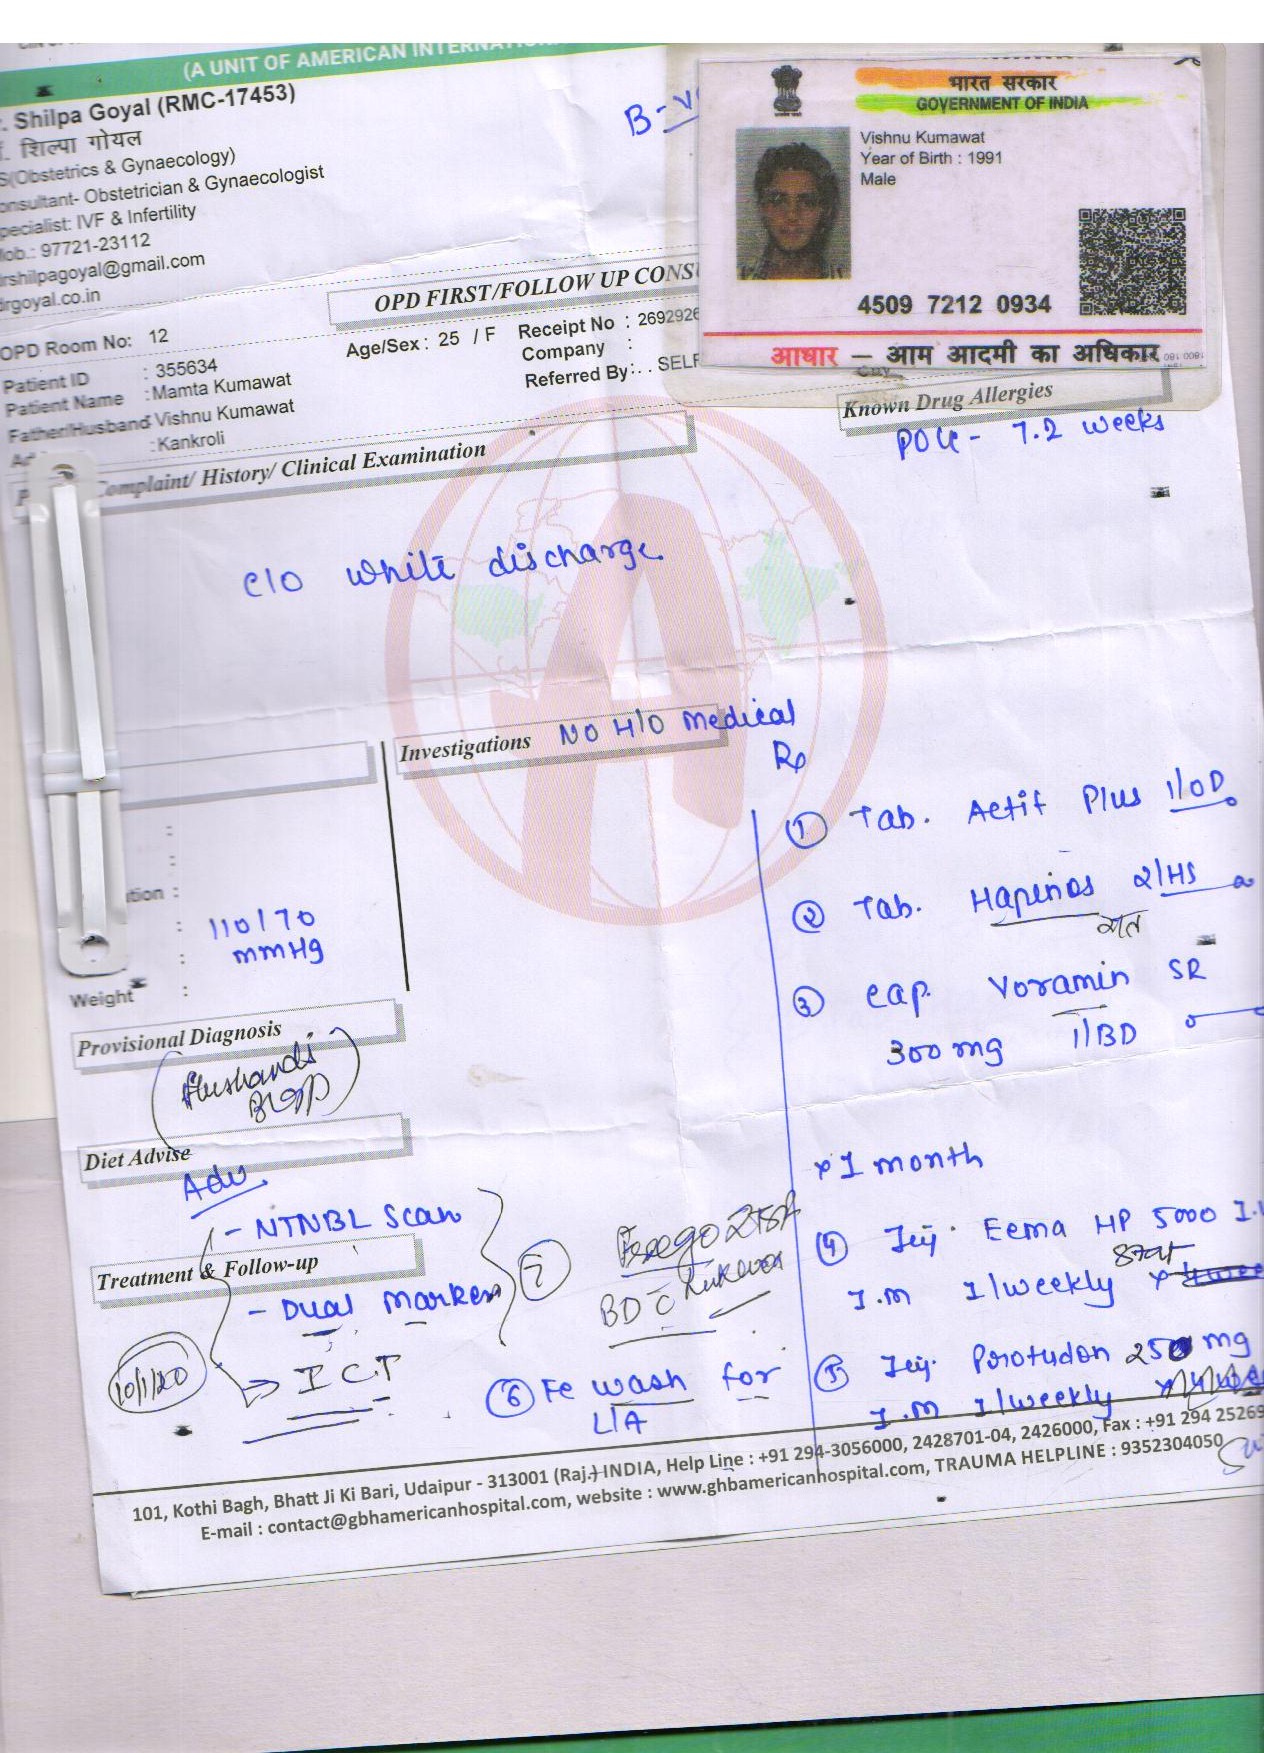 (A UNIT OF AMERICAN INTERNATIONAL
Shilpa Goyal (RMC-17453)
शिल्पा गोयल
(Obstetrics & Gynaecology)
Consultant- Obstetrician & Gynaecologist
Specialist: IVF & Infertility
Mob.: 97721-23112
drshilpagoyal@gmail.com
drgoyal.co.in
भारत सरकार
GOVERNMENT OF INDIA
Vishnu Kumawat
Year of Birth : 1991
Male
4509 7212 0934
आधार – आम आदमी का अधिकार
OPD FIRST/FOLLOW UP CONS
OPD Room No: 12
Patient ID : 355634
Patient Name : Mamta Kumawat
Father/Husband: Vishnu Kumawat
: Kankroli
Age/Sex : 25 / F
Receipt No : 2692926
Company :
Referred By: . . SELF
Known Drug Allergies
POG - 7.2 weeks
Complaint/ History/ Clinical Examination
c/o white discharge
Investigations
NO H/O medical
110/70
mmHg
Weight :
Provisional Diagnosis
(Husband's
Diet Advise
Adv
- NTNBL Scan
Treatment & Follow-up
- Dual Marker
→ ICT
10/1/20
① Tab. Actif Plus 1/OD
② Tab. Hapenos 2/HS
③ cap. Voramin SR
300 mg 1/BD
x 1 month
④ Inj. Eema HP 5000 I.
stat
I.M 1/weekly
⑤ Inj. Porotudon 250 mg
I.M 1/weekly
⑥ Fe wash for
L/A
⑦
101, Kothi Bagh, Bhatt Ji Ki Bari, Udaipur - 313001 (Raj.) INDIA, Help Line : +91 294-3056000, 2428701-04, 2426000, Fax : +91 294 25269
E-mail : contact@gbhamericanhospital.com, website : www.gbhamericanhospital.com, TRAUMA HELPLINE : 9352304050